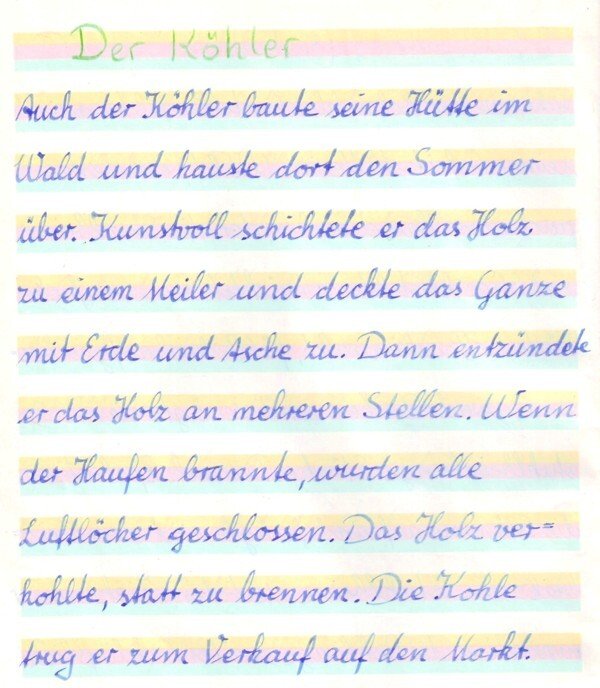 Der Köhler
Auch der Köhler baute seine Hütte im
Wald und hauste dort den Sommer
über. Kunstvoll schichtete er das Holz
zu einem Meiler und deckte das Ganze
mit Erde und Asche zu. Dann entzündete
er das Holz an mehreren Stellen. Wenn
der Haufen brannte, wurden alle
Luftlöcher geschlossen. Das Holz ver=
kohlte, statt zu brennen. Die Kohle
trug er zum Verkauf auf den Markt.